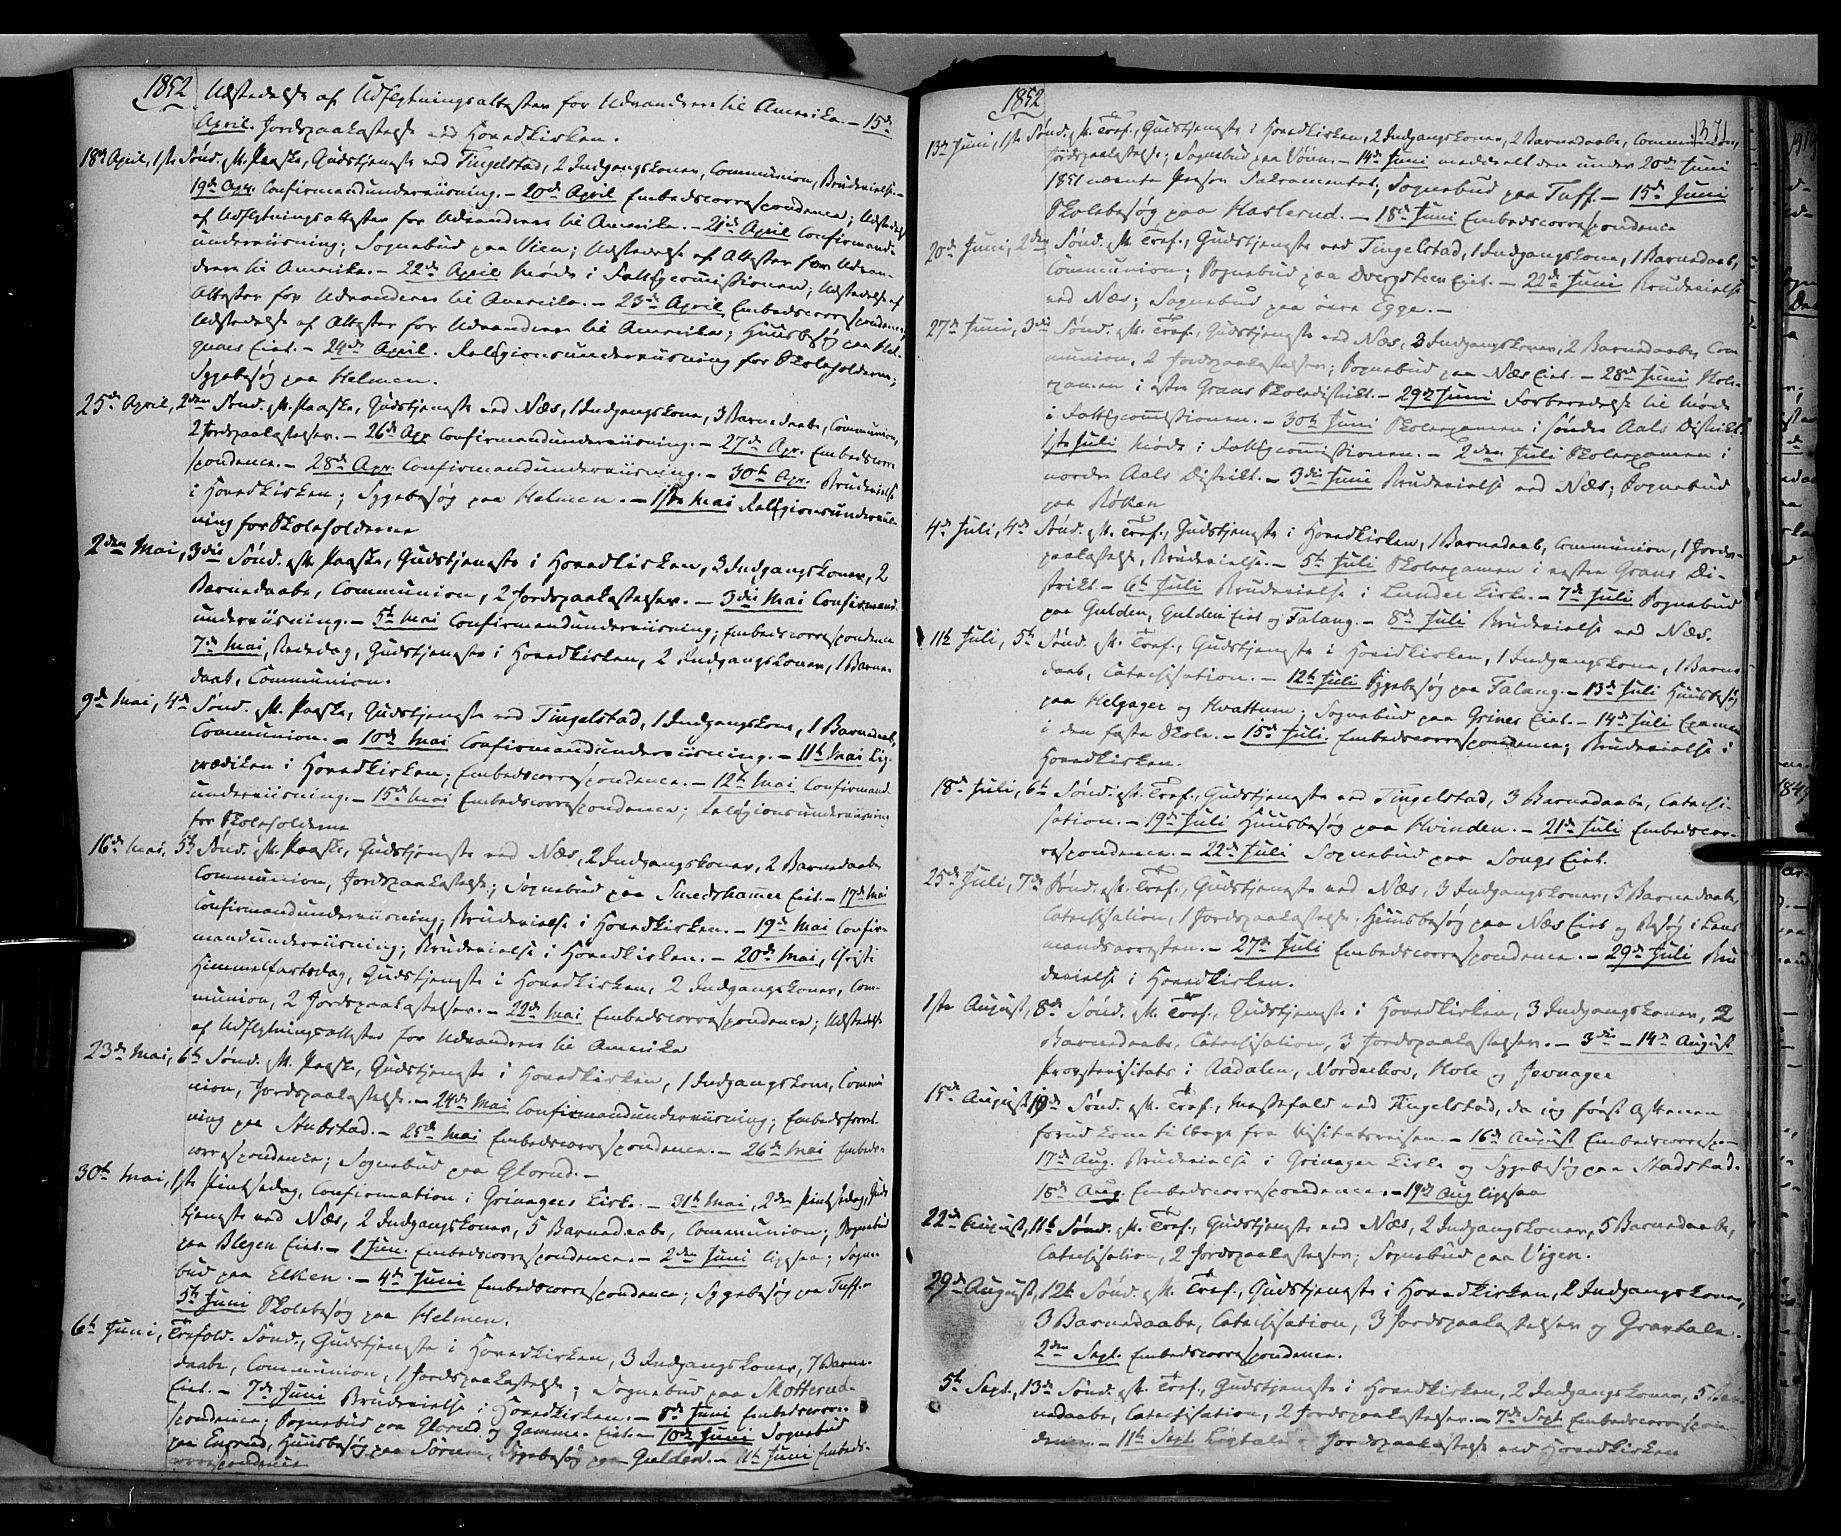 1852
Udstedelse af Udflytningsattester for Udvandrere til Amerika. – 15de
April. Jordspaakastelse ved Hovedkirken.
18de April, 1ste Sønd. eft. Paaske, Gudstjeneste ved Tingelstad, 2 Indgangskoner, Communion, Brudevielse. –
19de Apr. Confirmandunderviisning. – 20de April Embedscorrespondence; Udstedelse
af Udflytningsattester for Udvandrere til Amerika. – 21de April Confirmand-
underviisning; Sognebud paa Vien; Udstedelse af Attester for Udvan-
drere til Amerika. – 22de April Møde i Fattigcommissionen; Udstedelse af
Attester for Udvandrere til Amerika. – 23de April Embedscorrespondence;
Udstedelse af Attester for Udvandrere til Amerika; Huusbesøg paa Hel-
Eiet. – 24de April. Religionsunderviisning for Skoleholderne;
Sygebesøg paa Helmen.
25de April, 2den Sønd. eft. Paaske, Gudstjeneste ved Næs, 1 Indgangskone, 3 Barnedaabe, Communion,
2 Jordspaakastelser. – 26de Apr. Confirmandunderviisning. – 27de Apr. Embedscorre-
spondence. – 28de Apr. Confirmandunderviisning. – 30te Apr. Brudevielse
i Hovedkirken; Sygebesøg paa Helmen. – 1ste Mai Religionsunderviis-
ning for Skoleholderne
2den Mai, 3die Sønd. eft. Paaske, Gudstjeneste i Hovedkirken, 3 Indgangskoner, 2
Barnedaabe, Communion, 2 Jordspaakastelser. – 3die Mai Confirmand-
underviisning. – 5te Mai Confirmandunderviisning; Embedscorrespondence
7de Mai, Bededag, Gudstjeneste i Hovedkirken, 2 Indgangskoner, 1 Barne-
daab, Communion.
9de Mai, 4de Sønd. eft. Paaske, Gudstjeneste ved Tingelstad, 1 Indgangskone, 1 Barnedaab,
Communion. – 10de Mai Confirmandunderviisning. – 11te Mai Lig-
prædiken i Hovedkirken; Embedscorrespondence. – 12te Mai Confirmand-
underviisning. – 15de Mai Embedscorrespondence; Religionsunderviisning
for Skoleholderne
16de Mai, 5te Sønd. eft. Paaske, Gudstjeneste ved Næs, 2 Indgangskoner, 2 Barnedaabe
Communion, Jordspaakastelse; Sognebud paa Smedshammer Eiet. – 17de Mai
Confirmandunderviisning; Brudevielse i Hovedkirken. – 19de Mai Confir-
mandunderviisning; Brudevielse i Hovedkirken. – 20de Mai, Christi
Himmelfartsdag, Gudstjeneste i Hovedkirken, 2 Indgangskoner, Com-
munion, 2 Jordspaakastelser. – 22de Mai Embedscorrespondence; Udstedelse
af Udflytningsattester for Udvandrere til Amerika
23de Mai, 6te Sønd. eft. Paaske, Gudstjeneste i Hovedkirken, 1 Indgangskone, Commu-
nion, Jordspaakastelse. – 24de Mai Confirmandunderviisning; Embedsforret-
ning paa Stubstad. – 25de Mai Embedscorrespondence. – 26de Mai Embeds-
correspondence; Sognebud paa Glorud. –
30te Mai, 1ste Pintsedag, Confirmation i Grinagers Kirke. – 31te Mai, 2den Pintsedag, Guds-
tjeneste ved Næs, 2 Indgangskoner, 5 Barnedaabe, Communion; Sognebud
paa Blegen Eiet. – 1 Juni Embedscorrespondence. – 2den Juni ligesaa; Sogne-
bud paa Elken. – 4de Juni Embedscorrespondence; Sygebesøg paa Tuff. –
5te Juni Skolebesøg paa Helmen.
6te Juni, Trefold. Sønd., Gudstjeneste i Hovedkirken, 3 Indgangskoner, 7 Barne-
daabe, Communion, 1 Jordspaakastelse; Sognebud paa Skotterud-
Eiet. – 7de Juni Brudevielse i Hovedkirken. – 8de Juni Embedscorre-
spondence; Sognebud paa Glorud og Gamme Eiet. – 10de Juni Sognebud
paa Engrud, Huusbesøg paa Sørum, Sygebesøg paa Gulden. – 11te Juni Embeds-
correspondence
1852
1371
13de Juni, 1ste Sønd. eft. Tref., Gudstjeneste i Hovedkirken, 2 Indgangskoner, 2 Barnedaabe, Communion,
Jordspaakastelse; Sognebud paa Vøien. – 14de Juni meddeelt den under 20de Juni
1851 nævnte Person Sakramentet; Sognebud paa Tuff. – 15de Juni
Skolebesøg paa Haslerud. – 18de Juni Embedscorrespondence
20de Juni, 2den Sønd. eft. Tref., Gudstjeneste ved Tingelstad, 1 Indgangskone, 1 Barnedaab,
Communion; Sognebud paa Dvergsteen Eiet. – 22de Juni Brudevielse
ved Næs; Sognebud paa øvre Egge. –
27de Juni, 3die Sønd. eft. Tref., Gudstjeneste ved Næs, 3 Indgangskoner, 2 Barnedaabe, Com-
munion, 2 Jordspaakastelser; Sognebud paa Næs Eiet. – 28de Juni Skole-
examen i østre Grans Skoledistrikt. – 29de Juni Forberedelse til Møde
i Fattigcommissionen. – 30te Juni Skoleexamen i søndre Aals Distrikt.
1ste Juli Møde i Fattigcommissionen. – 2den Juli Skoleexamen i
nordre Aals Distrikt. – 3die Juni Brudevielse ved Næs; Sognebud
paa Røken
4de Juli, 4de Sønd. eft. Tref., Gudstjeneste i Hovedkirken, 1 Barnedaab, Communion, 1 Jords-
paakastelse, Brudevielse. – 5te Juli Skoleexamen i vestre Grans Di-
strikt. – 6te Juli Brudevielse i Lunder Kirke. – 7de Juli Sognebud
paa Gulden, Gulden Eiet og Falang. – 8de Juli Brudevielse ved Næs.
11te Juli, 5te Sønd. eft. Tref., Gudstjeneste i Hovedkirken, 1 Indgangskone, 1 Barne-
daab, Catechisation. – 12te Juli Sygebesøg paa Falang. – 13de Juli Huusbesøg
paa Helgager og Hvattum; Sognebud paa Grinee Eiet. – 14de Juli Examen
i den faste Skole. – 15de Juli. Embedscorrespondence; Brudevielse i
Hovedkirken.
18de Juli, 6te Sønd. eft. Tref., Gudstjeneste ved Tingelstad, 3 Barnedaabe, Catechi-
sation. – 19de Juli Huusbesøg paa Hvinden. – 21de Juli Embedscor-
respondence. – 22de Juli Sognebud paa Songs Eiet.
25de Juli, 7de Sønd. eft. Tref., Gudstjeneste ved Næs, 3 Indgangskoner, 5 Barnedaabe,
Catechisation, 1 Jordspaakastelse. Huusbesøg paa Næs Eiet og Besøg i Lens-
mandsarresten. – 27de Juli Embedscorrespondence. – 29de Juli Bru-
devielse i Hovedkirken.
1ste August, 8de Sønd. eft. Tref., Gudstjeneste i Hovedkirken, 3 Indgangskoner, 2
Barnedaabe, Catechisation, 3 Jordspaakastelser. – 3die – 14de August
Provstevisitats i Aadalen, Norderhov, Hole og Jevnager
15de August, 10de Sønd. eft. Tref., Messefald ved Tingelstad, da jeg først Aftenen
forud kom tilbage fra Visitatsreisen. – 16de August Embedscorrespo-
17de Aug. Brudevielse i Grinager Kirke og Sygebesøg paa Stadstad.
18de Aug. Embedscorrespondence. – 19de Aug ligesaa
22de August, 11te Sønd. eft. Tref., Gudstjeneste ved Næs, 2 Indgangskoner, 5 Barnedaabe,
Catechisation, 2 Jordspaakastelser; Sognebud paa Vigen.
29de August, 12te Sønd. eft. Tref., Gudstjeneste i Hovedkirken, 2 Indgangskoner,
3 Barnedaabe, Catechisation, 3 Jordspaakastelser og Gravtale.
2den Sept. Embedscorrespondence.
5te Sept., 13de Sønd. eft. Tref., Gudstjeneste i Hovedkirken, 2 Indgangskoner, 5 Bar-
nedaabe, Catechisation, 2 Jordspaakastelser. – 7de Sept. Embedscorrespon-
dence. – 11te Sept. Ligtale og Jordspaakastelse ved Hovedkirken